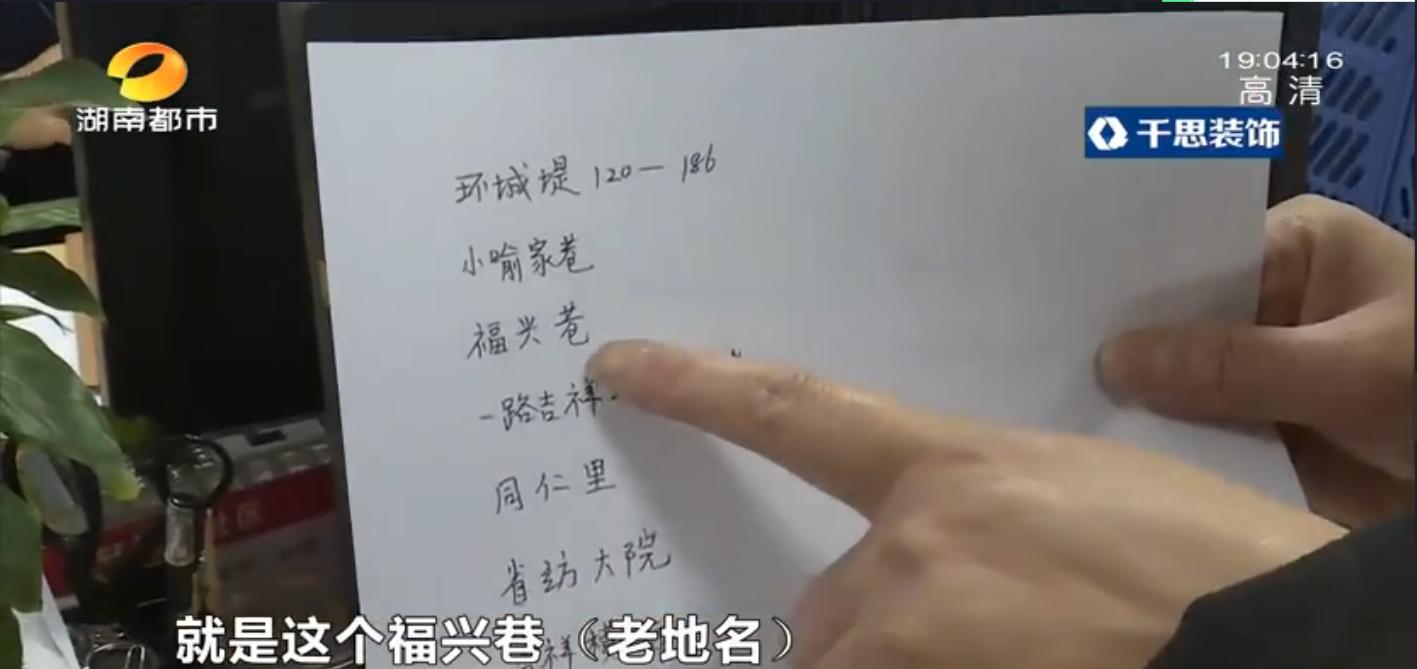 湖南都市
19:04:16
高清
千思装饰
环城堤 120—186
小喻家巷
福兴巷
一路吉祥
同仁里
省纺大院
祥
就是这个福兴巷（老地名）